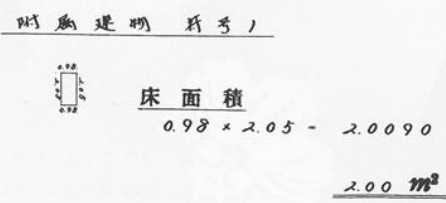 附属建物 符号1
0.98
2.05 2.05
0.98
床面積
0.98 × 2.05 = 2.0090
2.00 m²